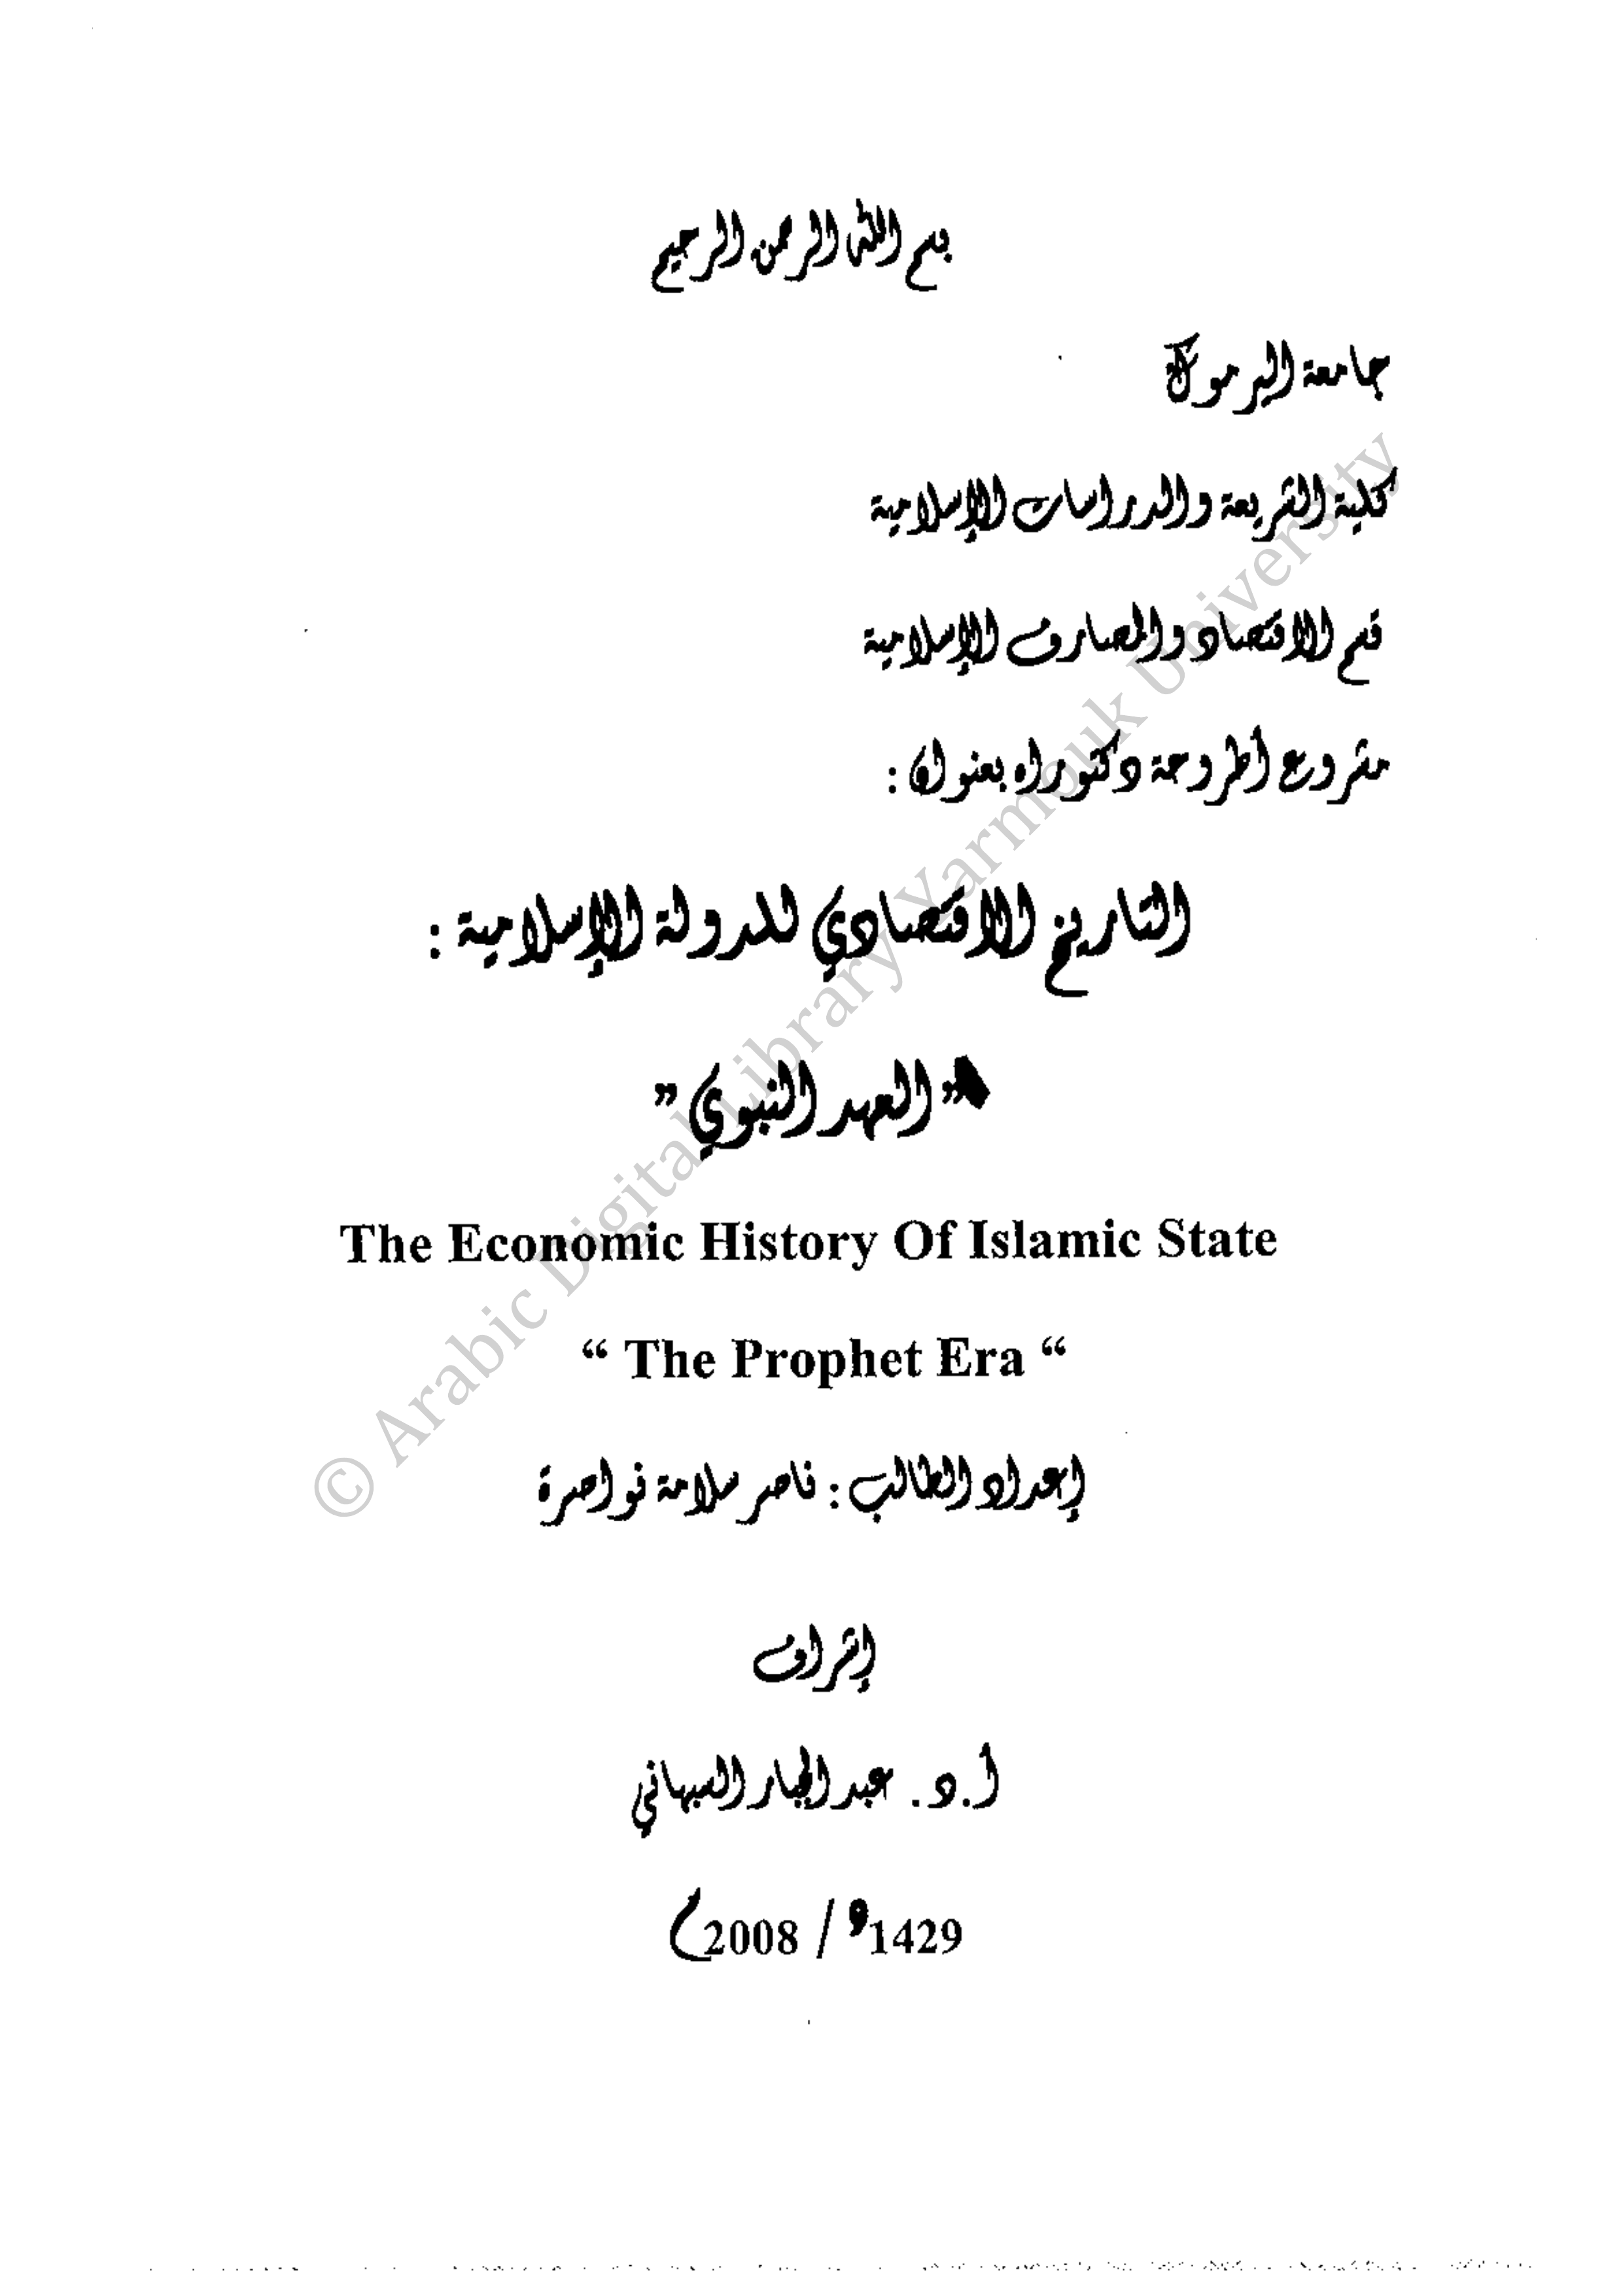 بسم الله الرحمن الرحيم
جامعة اليرموك
كلية الشريعة والدراسات الإسلامية
قسم الاقتصاد والمصارف الإسلامية
مشروع أطروحة دكتوراه بعنوان :
التاريخ الاقتصادي للدولة الإسلامية :
" العهد النبوي "
The Economic History Of Islamic State
“ The Prophet Era “
إعداد الطالب : ناصر سلامة نواصرة
إشراف
أ.د. عبد الجبار السبهاني
1429ه / 2008م
© Arabic Digital Library Yarmouk University